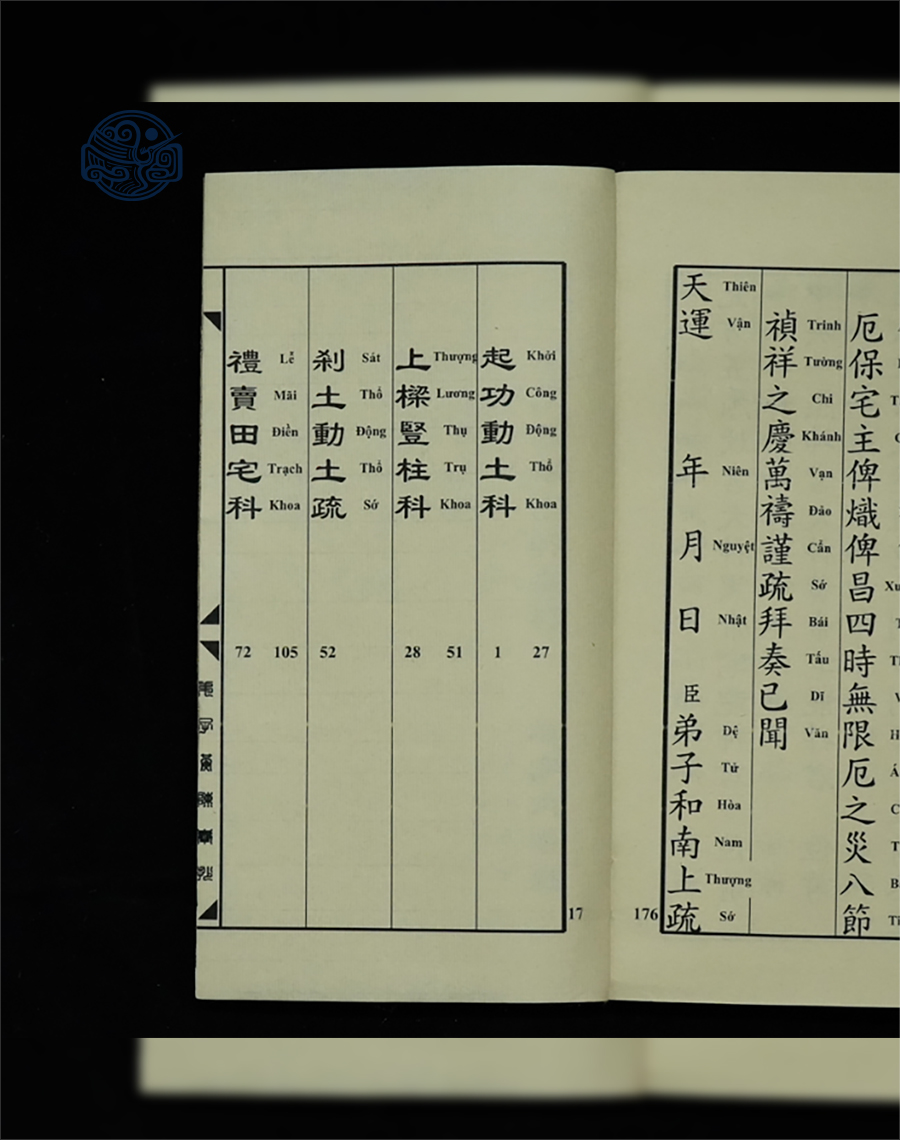 厄保宅主俾熾俾昌四時無限厄之災八節
禎祥之慶萬禱謹疏拜奏已聞
Trinh Tường Chi Khánh Vạn Đảo Cẩn Sớ Bái Tấu Dĩ Văn
天運 年 月 日 臣弟子和南上疏
Thiên Vận Niên Nguyệt Nhật Đệ Tử Hòa Nam Thượng Sớ
176
17
起功動土科 1
Khởi Công Động Thổ Khoa 27
上樑豎柱科 28
Thượng Lương Thụ Trụ Khoa 51
剎土動土疏 52
Sát Thổ Động Thổ Sớ
禮賣田宅科 72
Lễ Mãi Điền Trạch Khoa 105